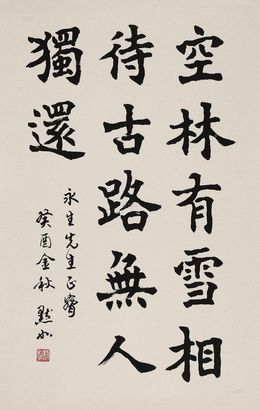 空林有雪相
待古路無人
獨還
永生先生正腕
癸酉金秋 默如